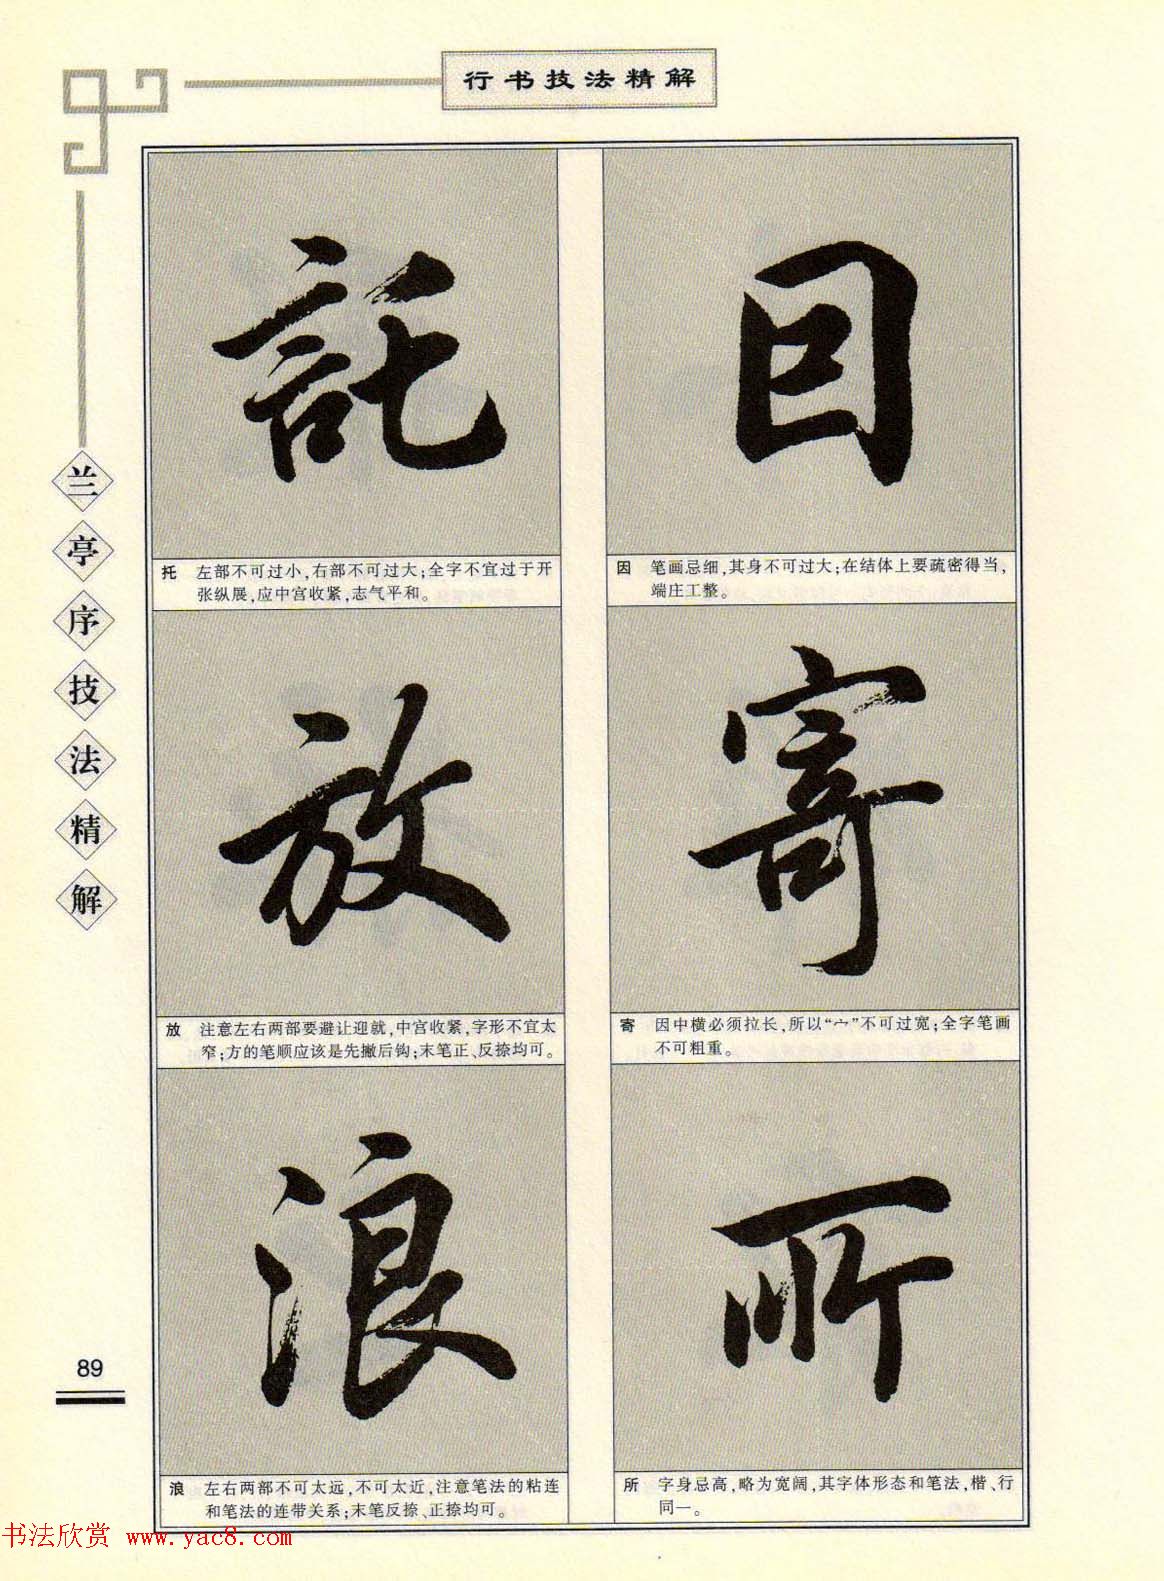 行书技法精解
兰亭序技法精解
因
因 笔画忌细,其身不可过大;在结体上要疏密得当,
端庄工整。
寄
寄 因中横必须拉长,所以“宀”不可过宽;全字笔画
不可粗重。
所
所 字身忌高,略为宽阔,其字体形态和笔法,楷、行
同一。
託
托 左部不可过小,右部不可过大;全字不宜过于开
张纵展,应中宫收紧,志气平和。
放
放 注意左右两部要避让迎就,中宫收紧,字形不宜太
窄;方的笔顺应该是先撇后钩;末笔正、反捺均可。
浪
浪 左右两部不可太远,不可太近,注意笔法的粘连
和笔法的连带关系;末笔反捺、正捺均可。
89
书法欣赏 www.yac8.com